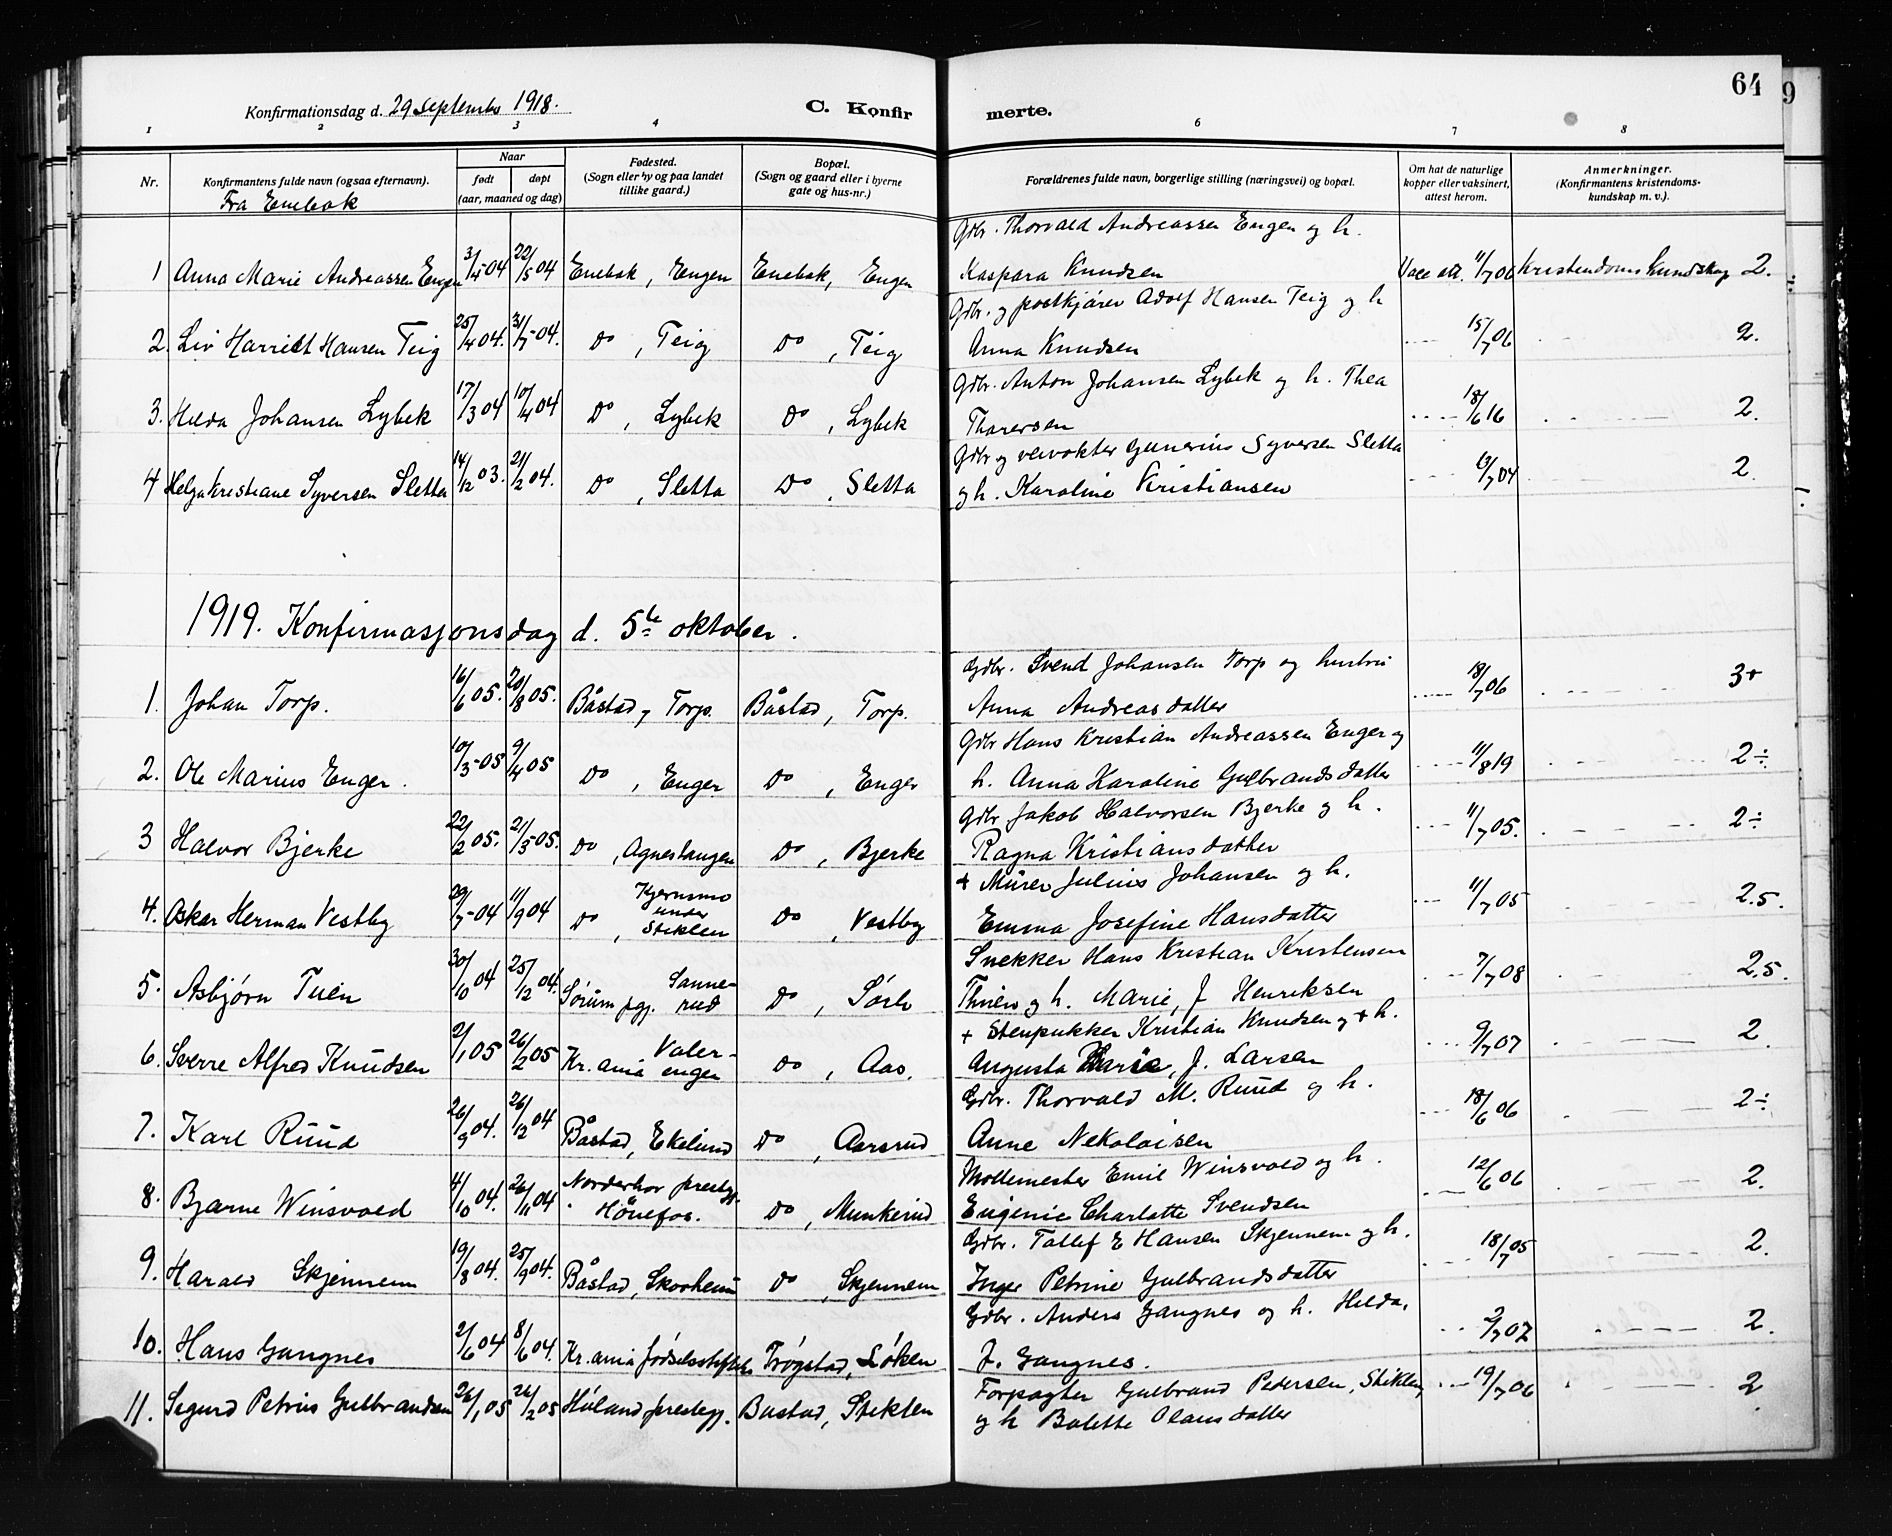 64
9
Konfirmationsdag d. 29 September 1918.
C. Konfir
merte.
1 2 3 4 6 7 8
Nr.
Konfirmantens fulde navn (ogsaa efternavn).
Naar
født
døpt
(aar, maaned og dag)
Fødested.
(Sogn eller by og paa landet
tillike gaard.)
Bopæl.
(Sogn og gaard eller i byerne
gate og hus-nr.)
Forældrenes fulde navn, borgerlige stilling (næringsvei) og bopæl.
Om hat de naturlige
kopper eller vaksinert,
attest herom.
Anmerkninger.
(Konfirmantens kristendoms-
kundskap m. v.).
Fra Enebak
Gdbr. Thorvald Andreassen Engen og h.
1 Anna Marie Andreassen Engen 3/4-04 22/5 04 Enebak, Engen Enebak, Engen Kaspara Knudsen Vacc att. 11/7 06 Kristendoms kundskap 2.
Gdbr. og postkjører Adolf Hansen Teig og h
2. Liv Harriet Hansen Teig 25/4 04. 31/7-04. Do, Teig Do, Teig Anna Knudsen 15/7 06 2.
Gdbr. Anton Johansen Lybek og h. Thea
3. Hilda Johansen Lybek 17/3 04 10/4 04 Do, Lybek Do, Lybek Thoresen 18/6 16 2.
Gdbr og veivokter Gunerius Syversen Sletta
4 Helga Kristiane Syversen Sletta 14/12 03. 21/2 04. Do, Sletta Do, Sletta og h. Karoline Kristiansen 13/7 04 2.
1919. Konfirmasjonsdag d. 5te oktober.
Gdbr. Svend Johansen Torp og hustru
1. Johan Torp. 16/6 05. 20/8 05. Båstad, Torp. Båstad, Torp. Anna Andreasdatter 18/7 06 3+
Gdbr Hans Kristian Andreassen Enger og
2. Ole Marius Enger. 10/3-05 9/4 05 Do, Enger Do, Enger h. Anna Karoline Gulbrandsdatter 11/8 19 2÷
Gdbr Jakob Halvorsen Bjerke og h.
3 Halvor Bjerke 22/2 05. 21/3-05. Do, Agnestangen Do, Bjerke Ragna Kristiansdatter 11/7 05. 2÷
+ Murer Julius Johansen og h.
4. Oskar Herman Vestby 29/7-04 11/9 04 Do, Kjernsmo under Stiklen Do, Vestby Emma Josefine Hansdatter 11/7 05 2.5.
Snekker Hans Kristian Kristensen
5. Asbjørn Tuen 30/10 04 25/12 04. Sørum pgj. Sannerud Do, Sørli Thuen og h. Marie, f. Henriksen 7/7 08 2.5.
+ Stenpukker Kristian Knudsen og + h.
6. Sverre Alfred Knudsen 2/1 05 26/2 05 Kr.ania Valerengen Do, Aas. Augusta Marie, f. Larsen 9/7 07 2.
Gdbr. Thorvald M. Ruud og h.
7. Karl Ruud 26/9 04. 26/12 04 Båstad, Ekelund Do, Aarsrud Anne Nekolaisen 18/6 06 2÷
Møllemester Emil Winsvold og h.
8. Bjarne Winsvold 4/10 04. 26/11 04 Norderhov prestegj. Hønefos. Do, Munkerud Eugenie Charlotte Svendsen 12/6 06 2.
Gdbr. Tollef E Hansen Skjennem og h.
9. Harald Skjennem 19/8 04. 25/9 04. Båstad, Skovheim Do, Skjennem Inger Petrine Gulbrandsdatter 18/7 05 2.
Gdbr. Anders Gangnes og h. Hilda,
10. Hans Gangnes 2/6 04 8/6 04. Kr.ania fødselsstiftelse Trøgstad, Løken f. Gangnes. 2/7 07 2.
Forpagter Gulbrand Pedersen, Stiklen,
11. Sigurd Petrus Gulbrandsen 26/1 05 26/2 05 Høland prestegj. Båstad, Stiklen og h Bolette Olausdatter 19/7 06 2